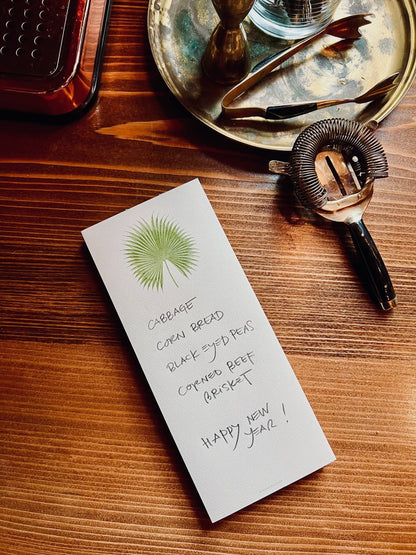 CABBAGE
CORN BREAD
BLACK EYED PEAS
CORNED BEEF
BRISKET
HAPPY NEW
YEAR!